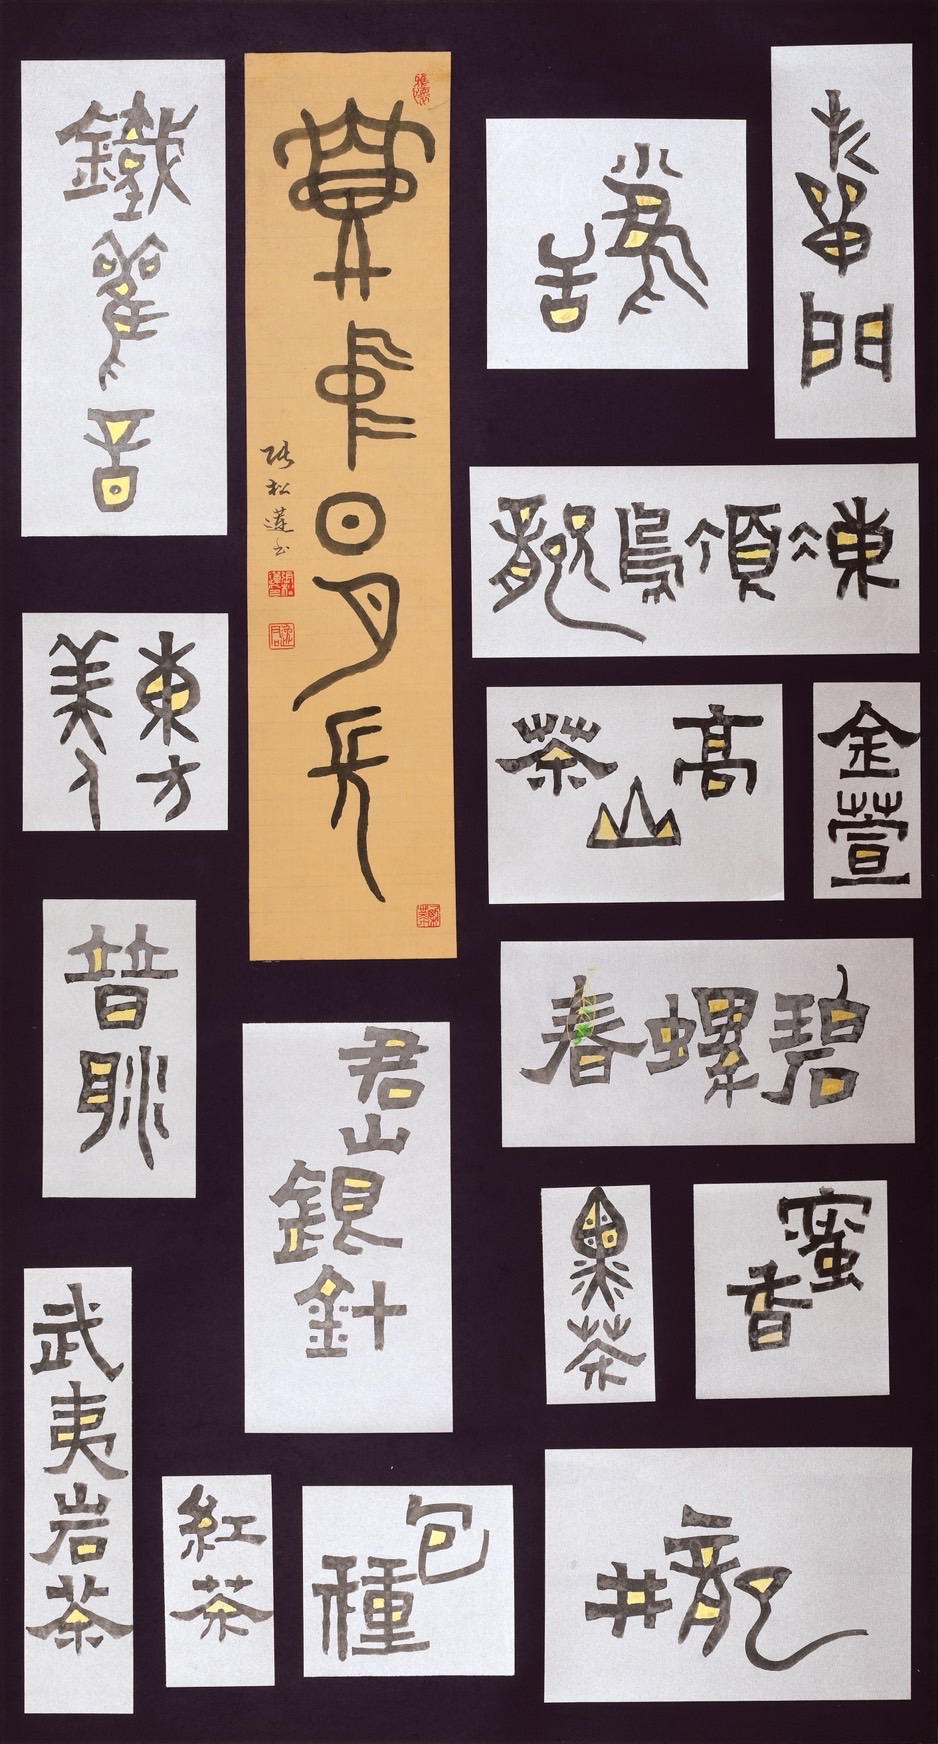 門
凍頂烏龍
高山茶
金萱
碧螺春
蜜香
黑茶
龍井
中日月長
張松蓮書
君山銀針
包種
鐵觀音
東方
美人
普洱
武夷岩茶
紅茶